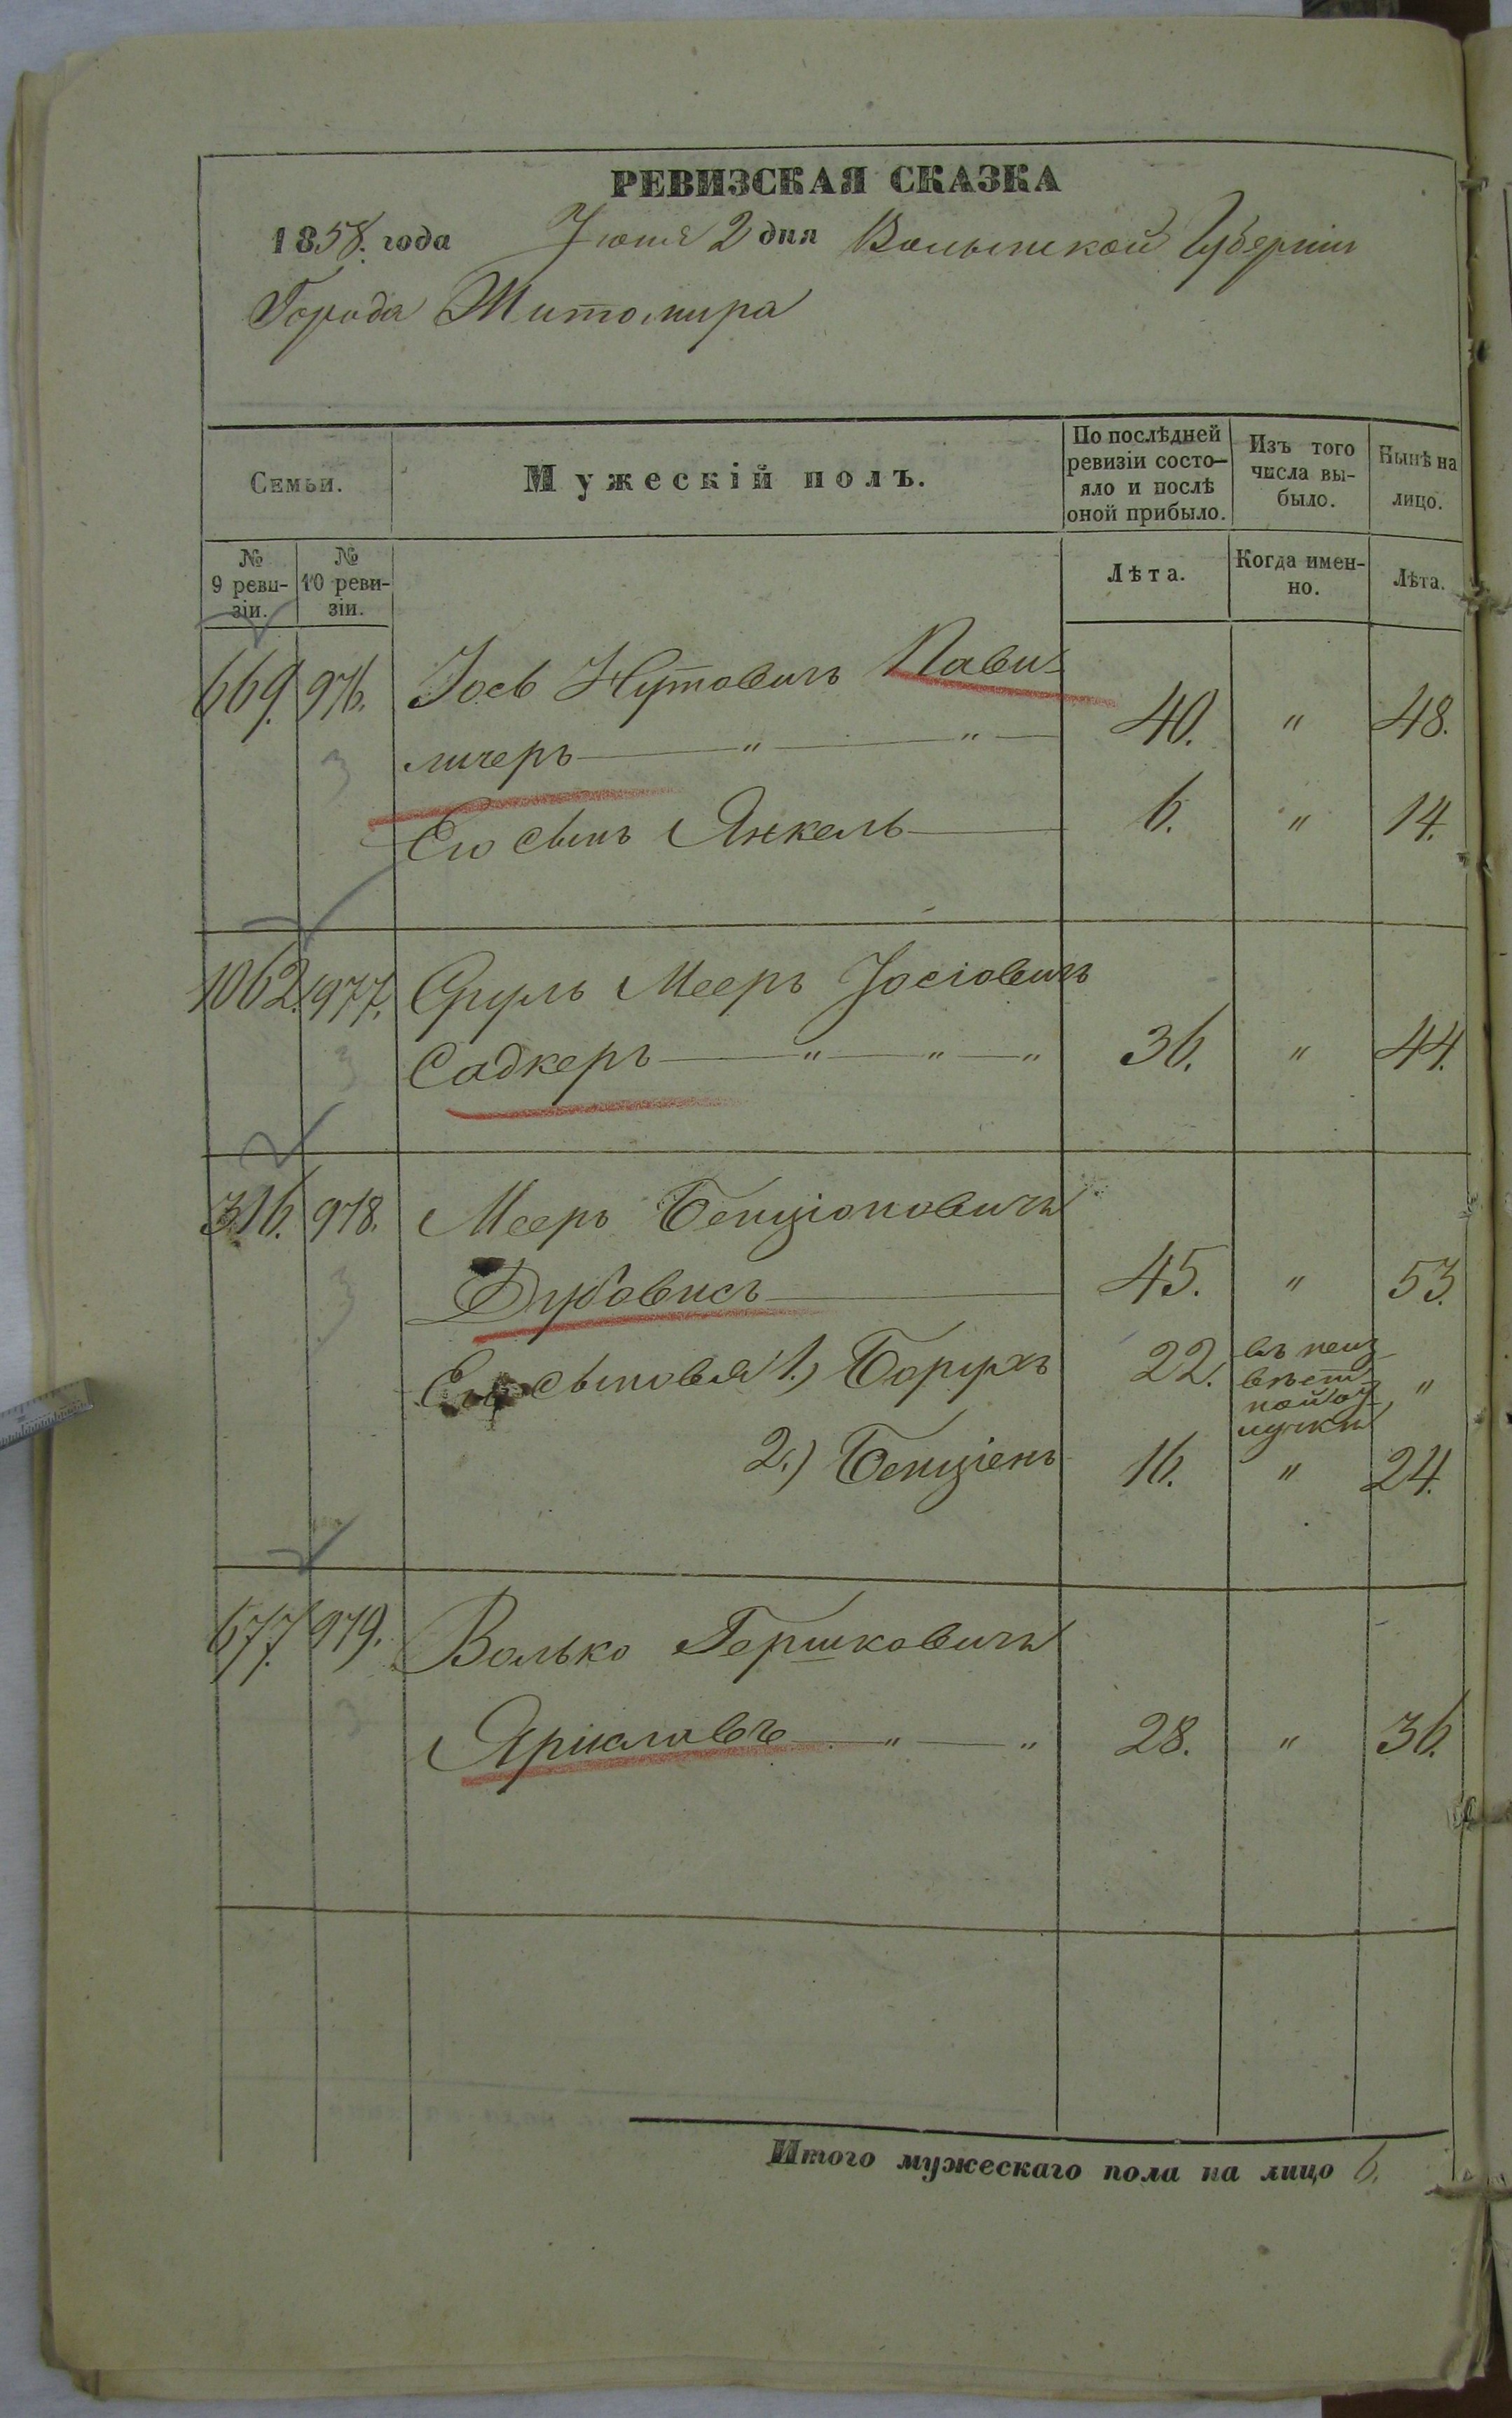 РЕВИЗСКАЯ СКАЗКА
1858. года Іюня 2 дня Волынской Губерніи
Города Житомира
Семьи.
Мужескій полъ.
По послѣдней ревизіи состо-
яло и послѣ
оной прибыло.
Изъ того
числа вы-
было.
Нынѣ на
лицо.
№
9 реви-
зіи.
№
10 реви-
зіи.
Лѣта.
Когда имен-
но.
Лѣта.
669. 976. Іосъ Нутовичъ Пави-
личеръ — " — " — 40. " 48.
Его сынъ Янкель — 6. " 14.
1062. 977. Сруль Мееръ Іосіовичъ
Садкеръ — " — " — " 36. " 44.
316. 978. Мееръ Бенціоновичъ
Дубовисъ — 45. " 53.
Его сыновья 1.) Борухъ 22. въ неиз
вѣст-
ной от
лучки "
2.) Бенціенъ 16. " 24.
677. 979. Волько Гершковичъ
— " — " 28. " 36.
Итого мужескаго пола на лицо 6.